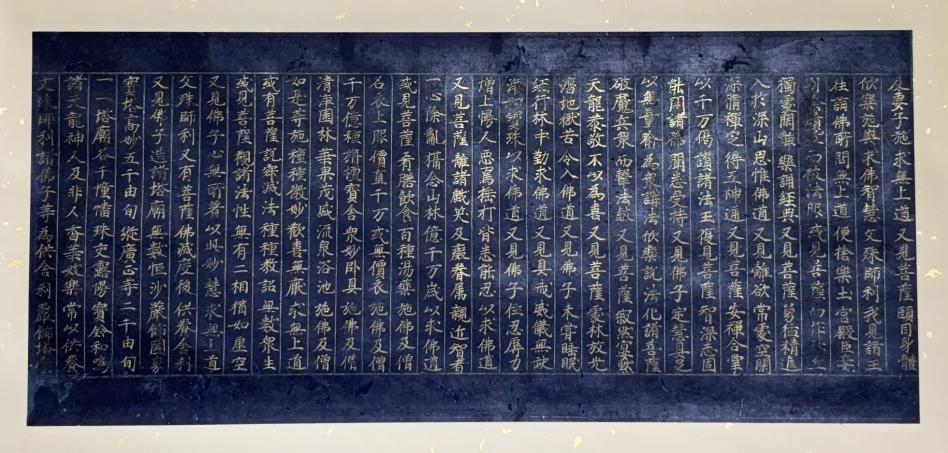 及妻子施求無上道又見菩薩頭目身體
欣樂施與求佛智慧文殊師利我見諸王
往詣佛所問無上道便捨樂土宮殿臣妾
剃除鬚髮而被法服或見菩薩而作比丘
獨處閑静樂誦經典又見菩薩勇猛精進
入於深山思惟佛道又見離欲常處空閑
深脩禪定得五神通又見菩薩安禪合掌
以千万偈讚諸法王復見菩薩智深志固
能問諸佛聞悉受持又見佛子定慧具足
以無量喻為衆講法欣樂說法化諸菩薩
破魔兵衆而擊法鼓又見菩薩寂然宴默
天龍恭敬不以為喜又見菩薩處林放光
濟地獄苦令入佛道又見佛子未嘗睡眠
經行林中勤求佛道又見具戒威儀無缺
淨如寶珠以求佛道又見佛子住忍辱力
增上慢人惡罵捶打皆悉能忍以求佛道
又見菩薩離諸戲笑及癡眷属親近智者
一心除亂攝念山林億千万歲以求佛道
或見菩薩肴膳飲食百種湯藥施佛及僧
名衣上服價直千万或無價衣施佛及僧
千万億種栴檀寶舍衆妙卧具施佛及僧
清淨園林華菓茂盛流泉浴池施佛及僧
如是等施種種微妙歡喜無厭求無上道
或有菩薩說寂滅法種種教詔無數衆生
或見菩薩觀諸法性無有二相猶如虛空
又見佛子心無所著以此妙慧求無上道
文殊師利又有菩薩佛滅度後供養舍利
又見佛子造諸塔廟無數恒沙嚴飾國界
寶塔高妙五千由旬縱廣正等二千由旬
一一塔廟各千幢幡珠交露幔寶鈴和鳴
諸天龍神人及非人香華妓樂常以供養
文殊師利諸佛子等為供舍利嚴飾塔廟